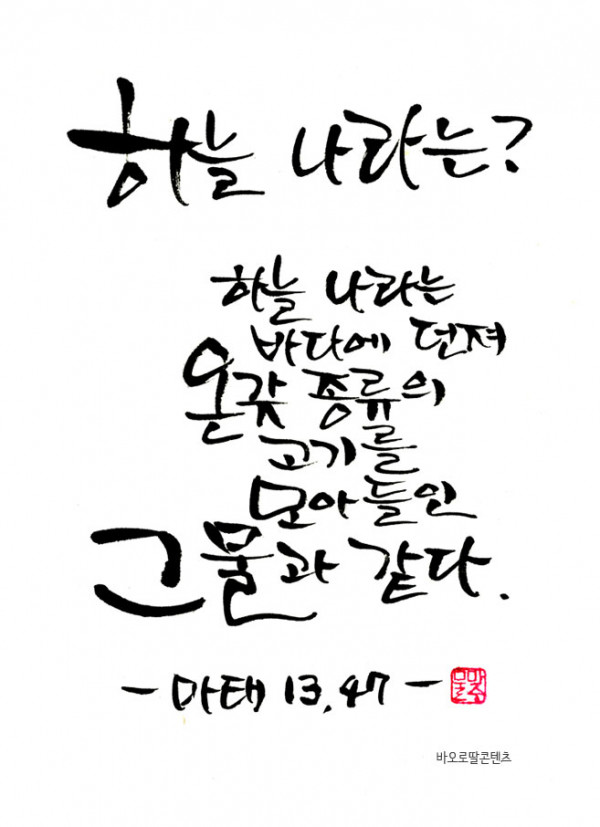 하늘 나라는?
하늘 나라는
바다에 던져
온갖 종류의
고기를
모아들인
그물과 같다.
- 마태 13,47 -
바오로딸콘텐츠